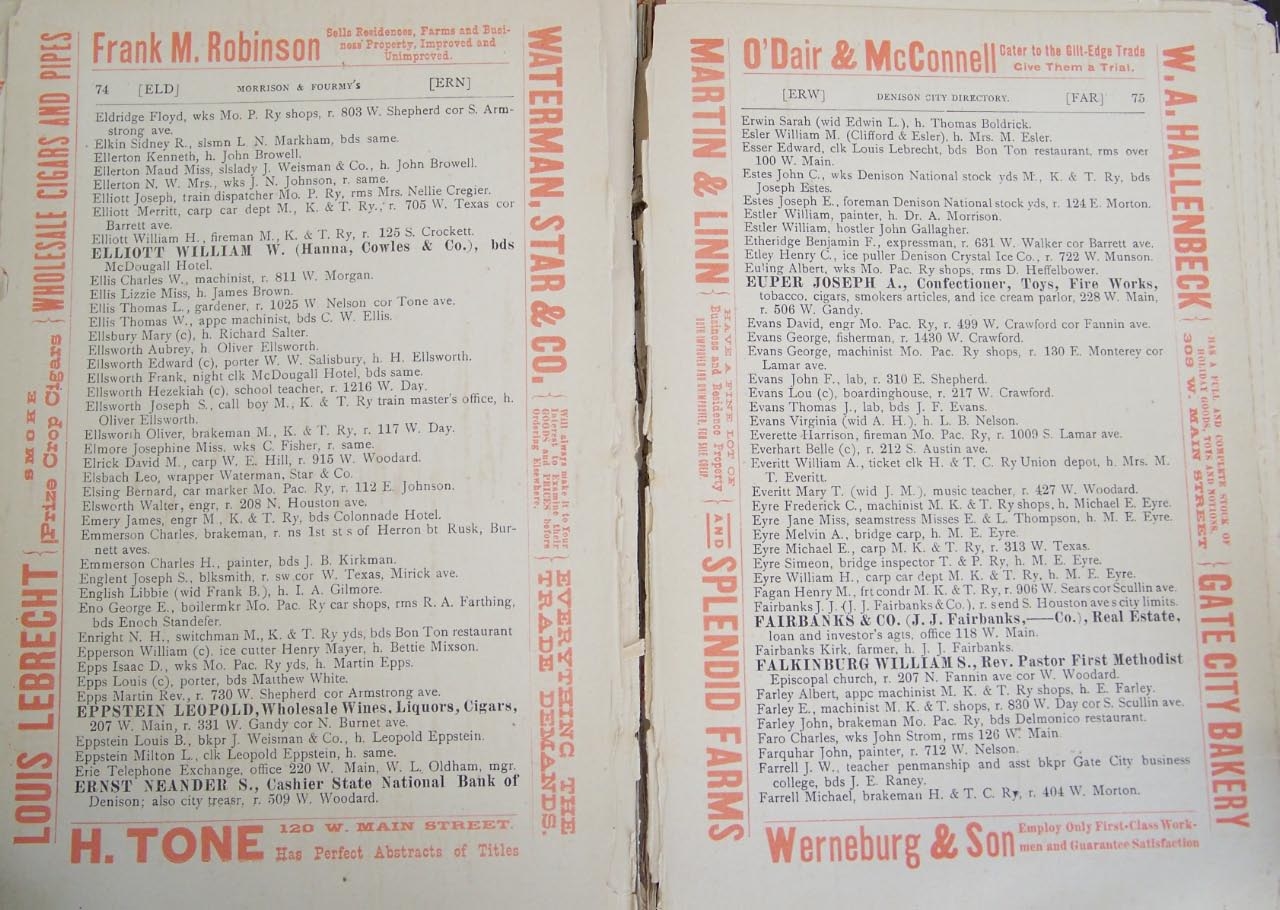 Frank M. Robinson
Sells Residences, Farms and Busi-
ness Property, Improved and
Unimproved.
74 [ELD] MORRISON & FOURMY'S [ERN]
Eldridge Floyd, wks Mo. P. Ry shops, r. 803 W. Shepherd cor S. Arm-
strong ave.
Elkin Sidney R., slsmn L. N. Markham, bds same.
Ellerton Kenneth, h. John Browell.
Ellerton Maud Miss, slslady J. Weisman & Co., h. John Browell.
Ellerton N. W. Mrs., wks J. N. Johnson, r. same.
Elliott Joseph, train dispatcher Mo. P. Ry, rms Mrs. Nellie Cregier.
Elliott Merritt, carp car dept M., K. & T. Ry., r. 705 W. Texas cor
Barrett ave.
Elliott William H., fireman M., K. & T. Ry, r. 125 S. Crockett.
ELLIOTT WILLIAM W. (Hanna, Cowles & Co.), bds
McDougall Hotel.
Ellis Charles W., machinist, r. 811 W. Morgan.
Ellis Lizzie Miss, h. James Brown.
Ellis Thomas L., gardener, r. 1025 W Nelson cor Tone ave.
Ellis Thomas W., appc machinist, bds C. W. Ellis.
Ellsbury Mary (c), h. Richard Salter.
Ellsworth Aubrey, h. Oliver Ellsworth.
Ellsworth Edward (c), porter W. W. Salisbury, h. H. Ellsworth.
Ellsworth Frank, night clk McDougall Hotel, bds same.
Ellsworth Hezekiah (c), school teacher, r. 1216 W. Day.
Ellsworth Joseph S., call boy M., K. & T. Ry train master's office, h.
Oliver Ellsworth.
Ellsworth Oliver, brakeman M., K. & T. Ry, r. 117 W. Day.
Elmore Josephine Miss, wks C. Fisher, r. same.
Elrick David M., carp W. E. Hill, r. 915 W. Woodard.
Elsbach Leo, wrapper Waterman, Star & Co.
Elsing Bernard, car marker Mo. Pac. Ry, r. 112 E. Johnson.
Elsworth Walter, engr, r. 208 N. Houston ave.
Emery James, engr M., K. & T. Ry, bds Colonnade Hotel.
Emmerson Charles, brakeman, r. ns 1st st s of Herron bt Rusk, Bur-
nett aves.
Emmerson Charles H., painter, bds J. B. Kirkman.
Englent Joseph S., blksmith, r. sw cor W. Texas, Mirick ave.
English Libbie (wid Frank B.), h. I. A. Gilmore.
Eno George E., boilermkr Mo. Pac. Ry car shops, rms R. A. Farthing,
bds Enoch Standefer.
Enright N. H., switchman M., K. & T. Ry yds, bds Bon Ton restaurant
Epperson William (c). ice cutter Henry Mayer, h. Bettie Mixson.
Epps Isaac D., wks Mo. Pac. Ry yds, h. Martin Epps.
Epps Louis (c), porter, bds Matthew White.
Epps Martin Rev., r. 730 W. Shepherd cor Armstrong ave.
EPPSTEIN LEOPOLD, Wholesale Wines, Liquors, Cigars,
207 W. Main, r. 331 W. Gandy cor N. Burnet ave.
Eppstein Louis B., bkpr J. Weisman & Co., h. Leopold Eppstein.
Eppstein Milton L., clk Leopold Eppstein, h. same.
Erie Telephone Exchange, office 220 W. Main, W. L. Oldham, mgr.
ERNST NEANDER S., Cashier State National Bank of
Denison; also city treasr, r. 509 W. Woodard.
H. TONE
120 W. MAIN STREET.
Has Perfect Abstracts of Titles
LOUIS LEBRECHT
SMOKE
Prize Crop Cigars
WHOLESALE CIGARS AND PIPES
WATERMAN, STAR & CO.
Will always make it to Your
Interest to Examine their
GOODS and PRICES before
Ordering Elsewhere.
EVERYTHING THE
TRADE DEMANDS.
O'Dair & McConnell
Cater to the Gilt-Edge Trade
Give Them a Trial.
[ERW] DENISON CITY DIRECTORY. [FAR] 75
Erwin Sarah (wid Edwin L.), h. Thomas Boldrick.
Esler William M. (Clifford & Esler), h. Mrs. M. Esler.
Esser Edward, clk Louis Lebrecht, bds Bon Ton restaurant, rms over
100 W. Main.
Estes John C., wks Denison National stock yds M., K. & T. Ry, bds
Joseph Estes.
Estes Joseph E., foreman Denison National stock yds, r. 124 E. Morton.
Estler William, painter, h. Dr. A. Morrison.
Estler William, hostler John Gallagher.
Etheridge Benjamin F., expressman, r. 631 W. Walker cor Barrett ave.
Etley Henry C., ice puller Denison Crystal Ice Co., r. 722 W. Munson.
Euling Albert, wks Mo. Pac. Ry shops, rms D. Heffelbower.
EUPER JOSEPH A., Confectioner, Toys, Fire Works,
tobacco, cigars, smokers articles, and ice cream parlor, 228 W. Main,
r. 506 W. Gandy.
Evans David, engr Mo. Pac. Ry, r. 499 W. Crawford cor Fannin ave.
Evans George, fisherman, r. 1430 W. Crawford.
Evans George, machinist Mo. Pac. Ry shops, r. 130 E. Monterey cor
Lamar ave.
Evans John F., lab, r. 310 E. Shepherd.
Evans Lou (c), boardinghouse, r. 217 W. Crawford.
Evans Thomas J., lab, bds J. F. Evans.
Evans Virginia (wid A. H.), h. L. B. Nelson.
Everette Harrison, fireman Mo. Pac. Ry, r. 1009 S. Lamar ave.
Everhart Belle (c), r. 212 S. Austin ave.
Everitt William A., ticket clk H. & T. C. Ry Union depot, h. Mrs. M.
T. Everitt.
Everitt Mary T. (wid J. M.), music teacher, r. 427 W. Woodard.
Eyre Frederick C., machinist M. K. & T. Ry shops, h. Michael E. Eyre.
Eyre Jane Miss, seamstress Misses E. & L. Thompson, h. M. E. Eyre.
Eyre Melvin A., bridge carp, h. M. E. Eyre.
Eyre Michael E., carp M. K. & T. Ry, r. 313 W. Texas.
Eyre Simeon, bridge inspector T. & P. Ry, h. M. E. Eyre.
Eyre William H., carp car dept M. K. & T. Ry, h. M. E. Eyre.
Fagan Henry M., frt condr M. K. & T. Ry, r. 906 W. Sears cor Scullin ave.
Fairbanks J. J. (J. J. Fairbanks & Co.), r. s end S. Houston ave s city limits.
FAIRBANKS & CO. (J. J. Fairbanks,—— Co.), Real Estate,
loan and investor's agts, office 118 W. Main.
Fairbanks Kirk, farmer, h. J. J. Fairbanks.
FALKINBURG WILLIAM S., Rev. Pastor First Methodist
Episcopal church, r. 207 N. Fannin ave cor W. Woodard.
Farley Albert, appc machinist M. K. & T. Ry shops, h. E. Farley.
Farley E., machinist M. K. & T. shops, r. 830 W. Day cor S. Scullin ave.
Farley John, brakeman Mo. Pac. Ry, bds Delmonico restaurant.
Faro Charles, wks John Strom, rms 126 W. Main.
Farquhar John, painter, r. 712 W. Nelson.
Farrell J. W., teacher penmanship and asst bkpr Gate City business
college, bds J. E. Raney.
Farrell Michael, brakeman H. & T. C. Ry, r. 404 W. Morton.
Werneburg & Son
Employ Only First-Class Work-
men and Guarantee Satisfaction
MARTIN & LINN
HAVE A FINE LOT OF
Business and Residence Property
BOTH IMPROVED AND UNIMPROVED, FOR SALE CHEAP.
AND
SPLENDID FARMS
W. A. HALLENBECK
HAS A FULL AND COMPLETE STOCK OF
HOLIDAY GOODS, TOYS AND NOTIONS.
308 W. MAIN STREET
GATE CITY BAKERY